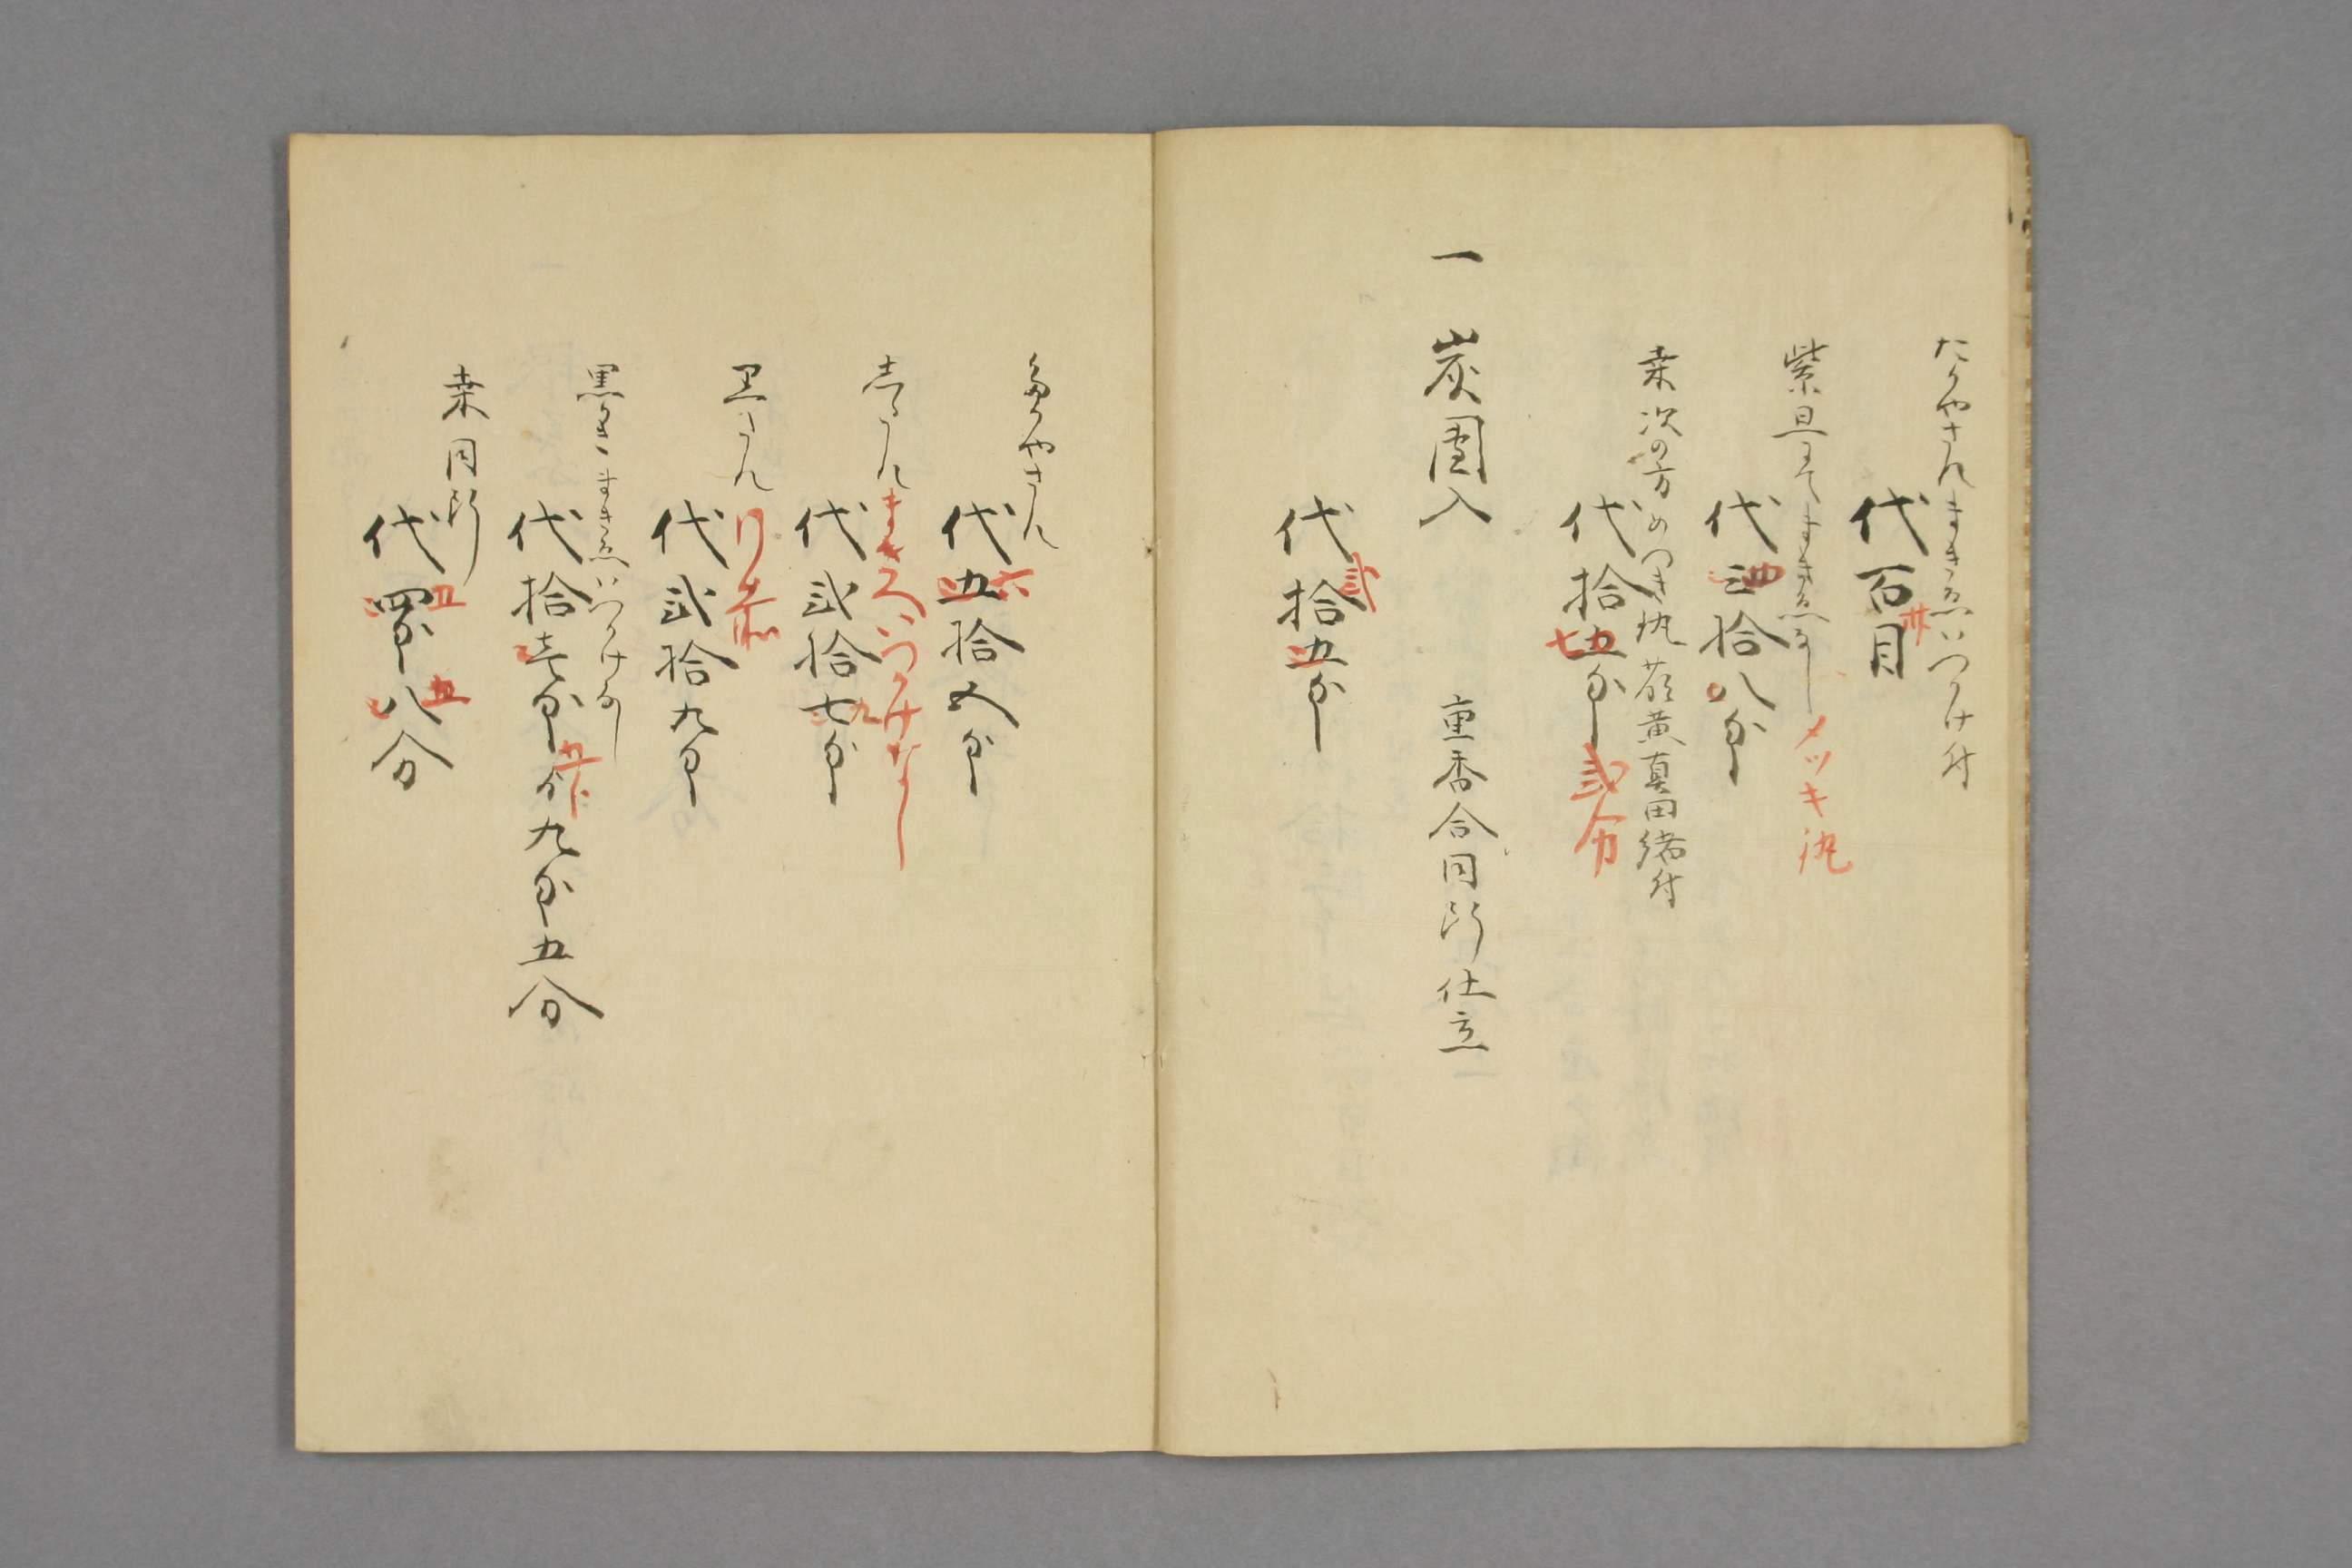 たかやさんまきゑいつかけ付
代百目
卅
紫旦にてまきゑなし
メッキ
代三拾八匁
四
桑次の方めつき
萌黄真田緒付
代拾五匁
七
弐分
一 炭團入 重香合同断仕立
代拾五匁
弐
たかやさん
代五拾五匁
六
志たん
まきゑいつかけなし
代弐拾七匁
九
黒たん
代弐拾九匁
黒かきまきゑいつかけなし
代拾壱匁
九匁五分
桑同断
代四匁八分
五
五